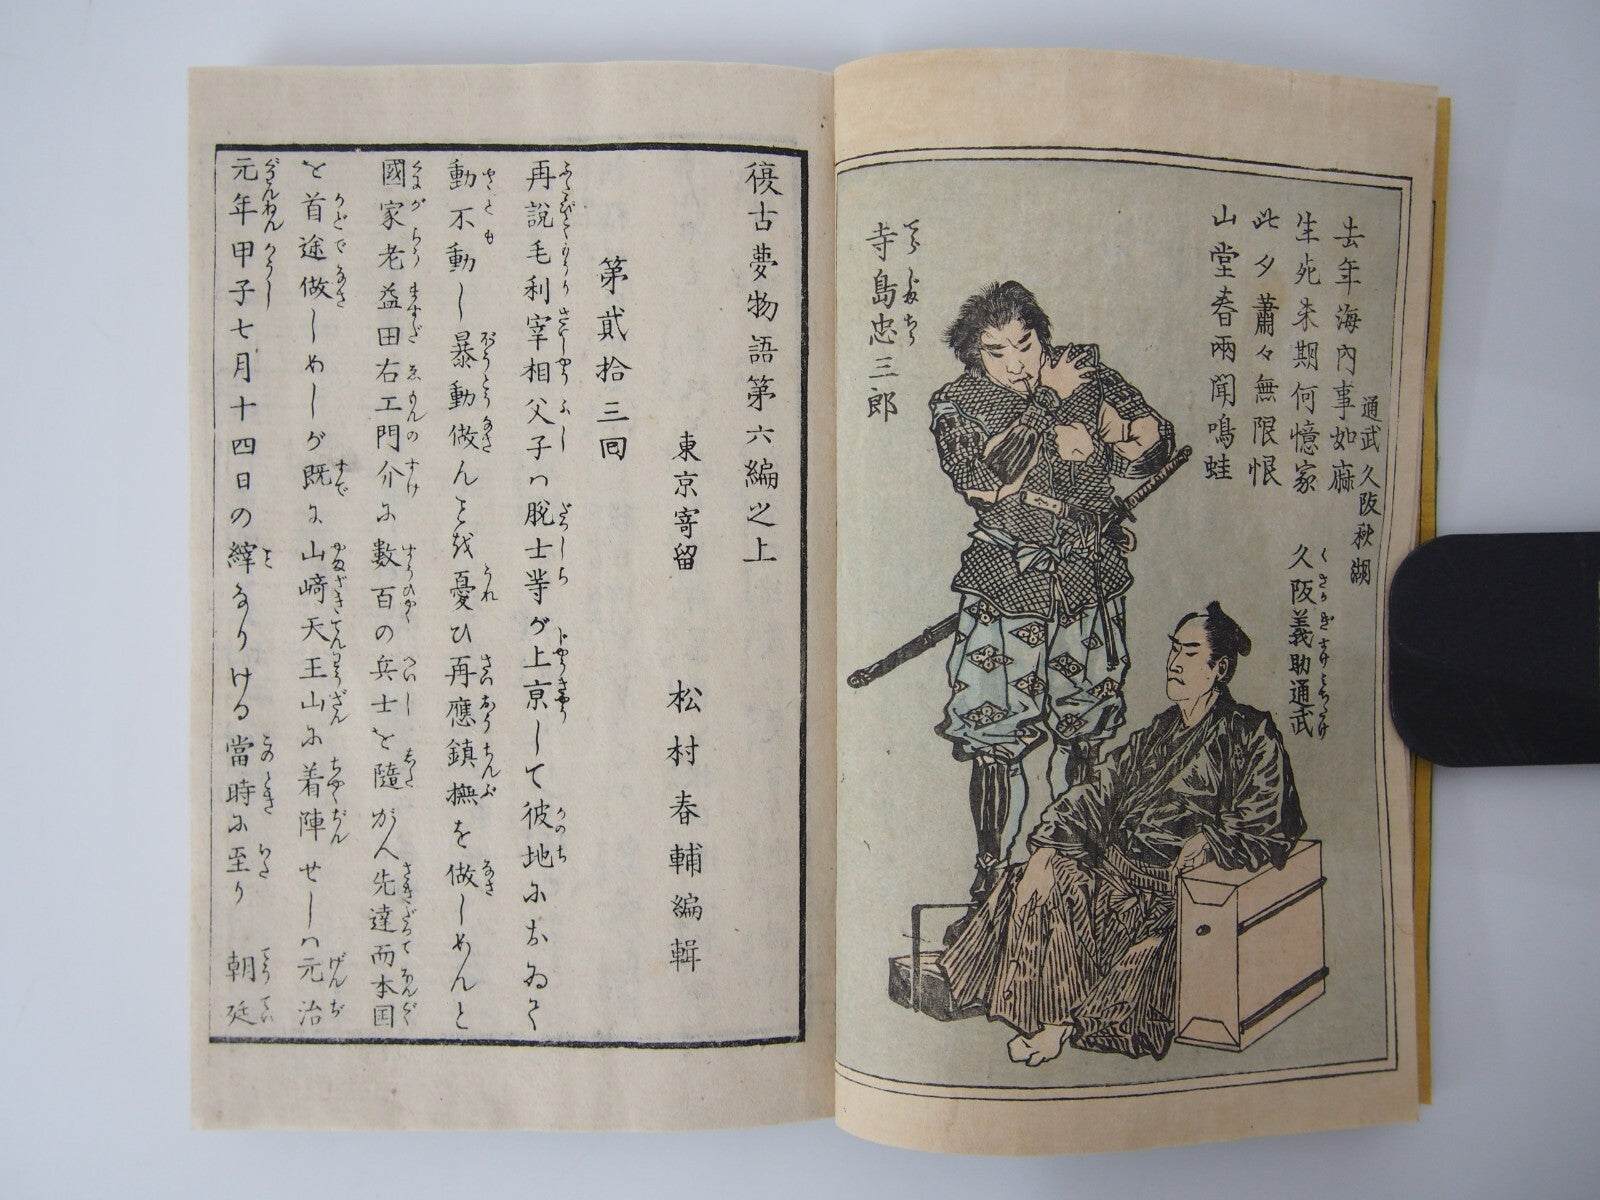 去年海內事如麻
生死未期何憶家
此夕蕭々無限恨
山堂春雨聞鳴蛙
通武久阪秋湖
久阪義助通武
くさかぎすけみちたけ
寺島忠三郎
てらしまちう
復古夢物語第六編之上
東京寄留 松村春輔編輯
第貳拾三回
再説毛利宰相父子ハ脱士等が上京して彼地におゐて
動不動し暴動做んを憂ひ再應鎮撫を做しめんと
國家老益田右エ門介に數百の兵士を随がへ先達而本国
を首途做しめしが既に山﨑天王山に着陣せしハ元治
元年甲子七月十四日の縡なりける當時に至り 朝廷